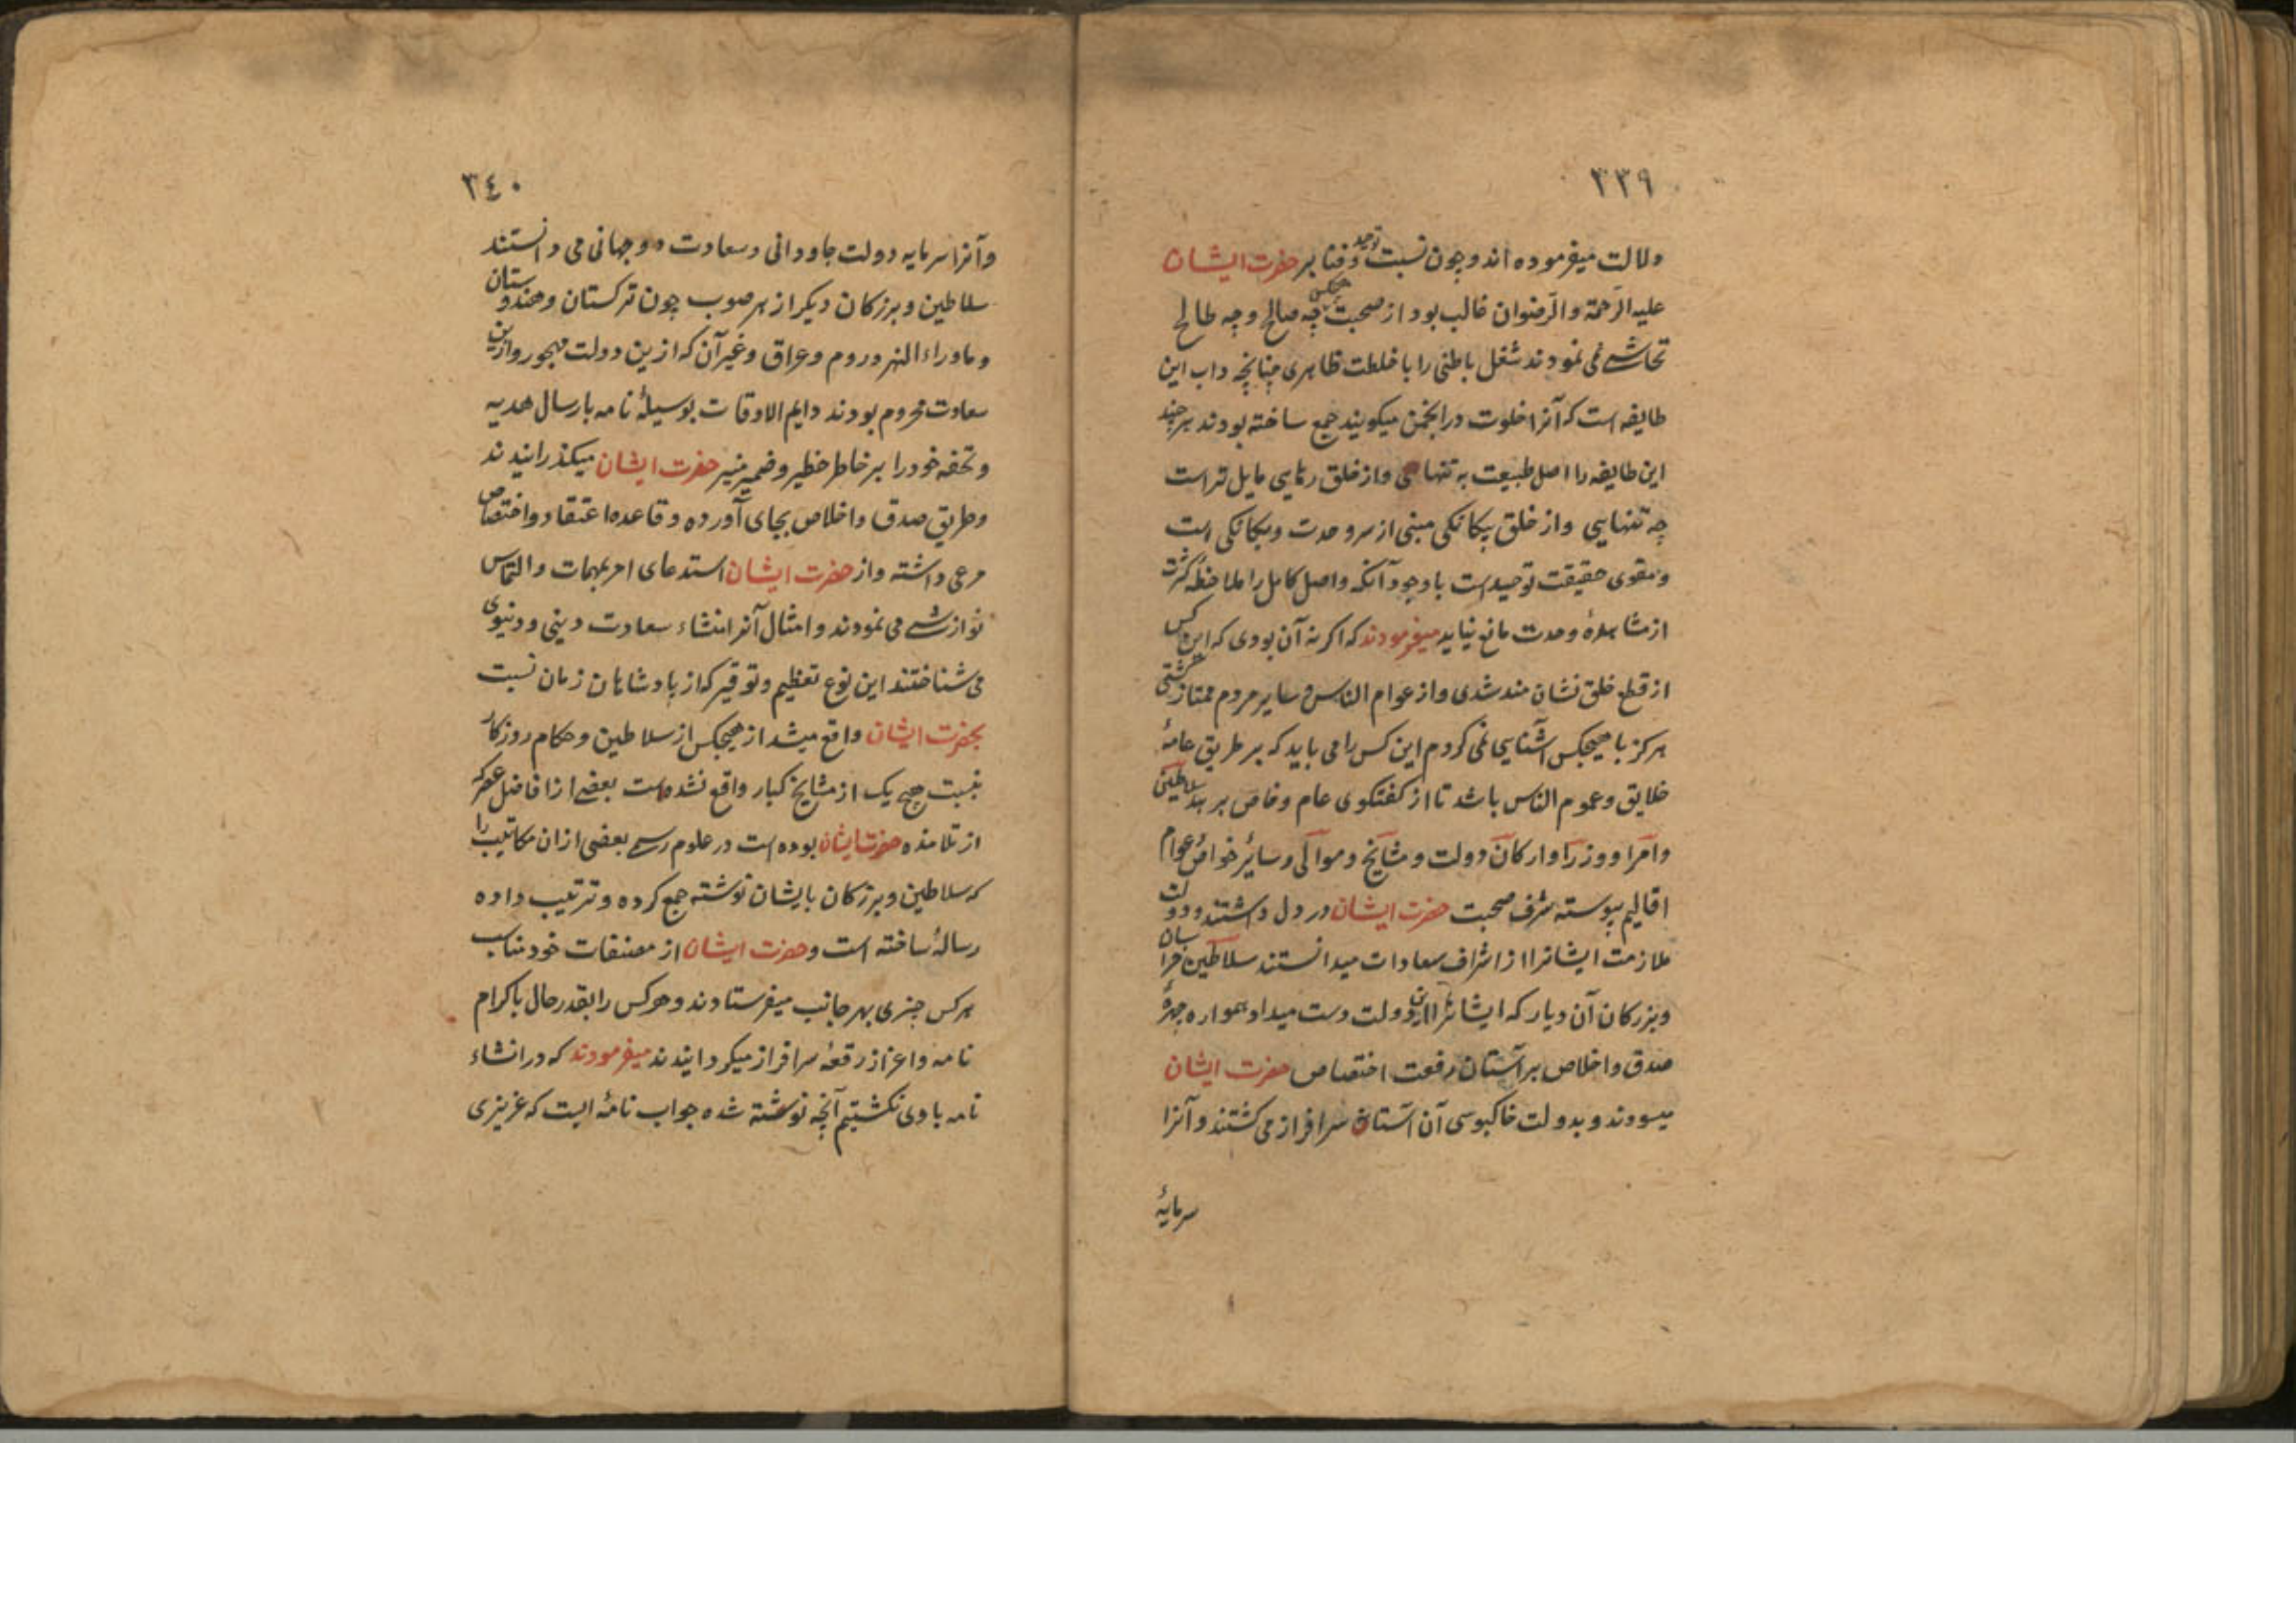 ۳۳۹
دلالت میفرموده اند و چون نسبت توحید و فنا بر حضرت ایشان
علیه الرّحمة والرّضوان غالب بود از صحبت هیچکس چه صالح و چه طالح
تحاشی نمی نمودند شغل باطنی را با خلطت ظاهری چنانچه داب این
طایفه است که آنرا خلوت در انجمن میکویند جمع ساخته بودند هر چند
این طایفه را اصل طبیعت به تنهایی و از خلق رمایی مایل تر است
چه تنهایی و از خلق بیکانکی مبنی از سر وحدت و یکانکی است
و مقوی حقیقت توحید است با وجود آنکه واصل کامل را ملاحظهٔ کثرت
از مشاهدهٔ وحدت مانع نیاید میفرمودند که اکر نه آن بودی که این کس
از قطع خلق نشان مند شدی و از عوام الناس و سایر مردم ممتاز کشتی
هرکز با هیچکس آشنایی نمی کردم این کس را می باید که بر طریق عامهٔ
خلایق و عموم الناس باشد تا از کفتکوی عام و خاص برهد سلاطین
و امرا و وزرا و ارکان دولت و مشایخ و موالی و سائر خواص و عوام
اقالیم پیوسته شرف صحبت حضرت ایشان در دل داشتند و دولت
ملازمت ایشانرا از اشراف سعادات میدانستند سلاطین خراسان
و بزرکان آن دیار که ایشانرا این دولت دست میداد همواره چهرهٔ
صدق و اخلاص بر آستان رفعت اختصاص حضرت ایشان
میسودند و بدولت خاکبوسی آن آستان سرافراز می کشتند و آنرا
سرمایهٔ
۳٤۰
و آنرا سرمایه دولت جاودانی و سعادت دو جهانی می دانستند
سلاطین و بزرکان دیکر از هر صوب چون ترکستان و هندوستان
و ماوراء النهر و روم و عراق و غیر آن که ازین دولت مهجور و ازین
سعادت محروم بودند دایم الاوقات بوسیلهٔ نامه بارسال هدیه
و تحفه خود را بر خاطر خطیر و ضمیر منیر حضرت ایشان میکذرانیدند
و طریق صدق و اخلاص بجای آورده و قاعده اعتقاد و اختصاص
مرعی داشته و از حضرت ایشان استدعای امر بمهمات و التماس
نوازشی می نمودند و امثال آنرا منشاء سعادت دینی و دنیوی
می شناختند این نوع تعظیم و توقیر که از پادشاهان زمان نسبت
بحضرت ایشان واقع میشد از هیچکس از سلاطین و حکام روزکار
بنسبت هیچ یک از مشایخ کبار واقع نشده است بعضی از افاضل عصر که
از تلامذه حضرت ایشان بوده است در علوم رسمی بعضی از ان مکاتیب را
که سلاطین و بزرکان بایشان نوشته جمع کرده و ترتیب داده
رسالهٔ ساخته است و حضرت ایشان از مصنفات خود مناسب
هرکس چیزی بهر جانب میفرستادند و هرکس را بقدر حال باکرام
نامه و اعزاز رقعهٔ سرافراز میکردانیدند میفرمودند که در انشاء
نامه بادی نکشتیم آنچه نوشته شده جواب نامهٔ است که عزیزی